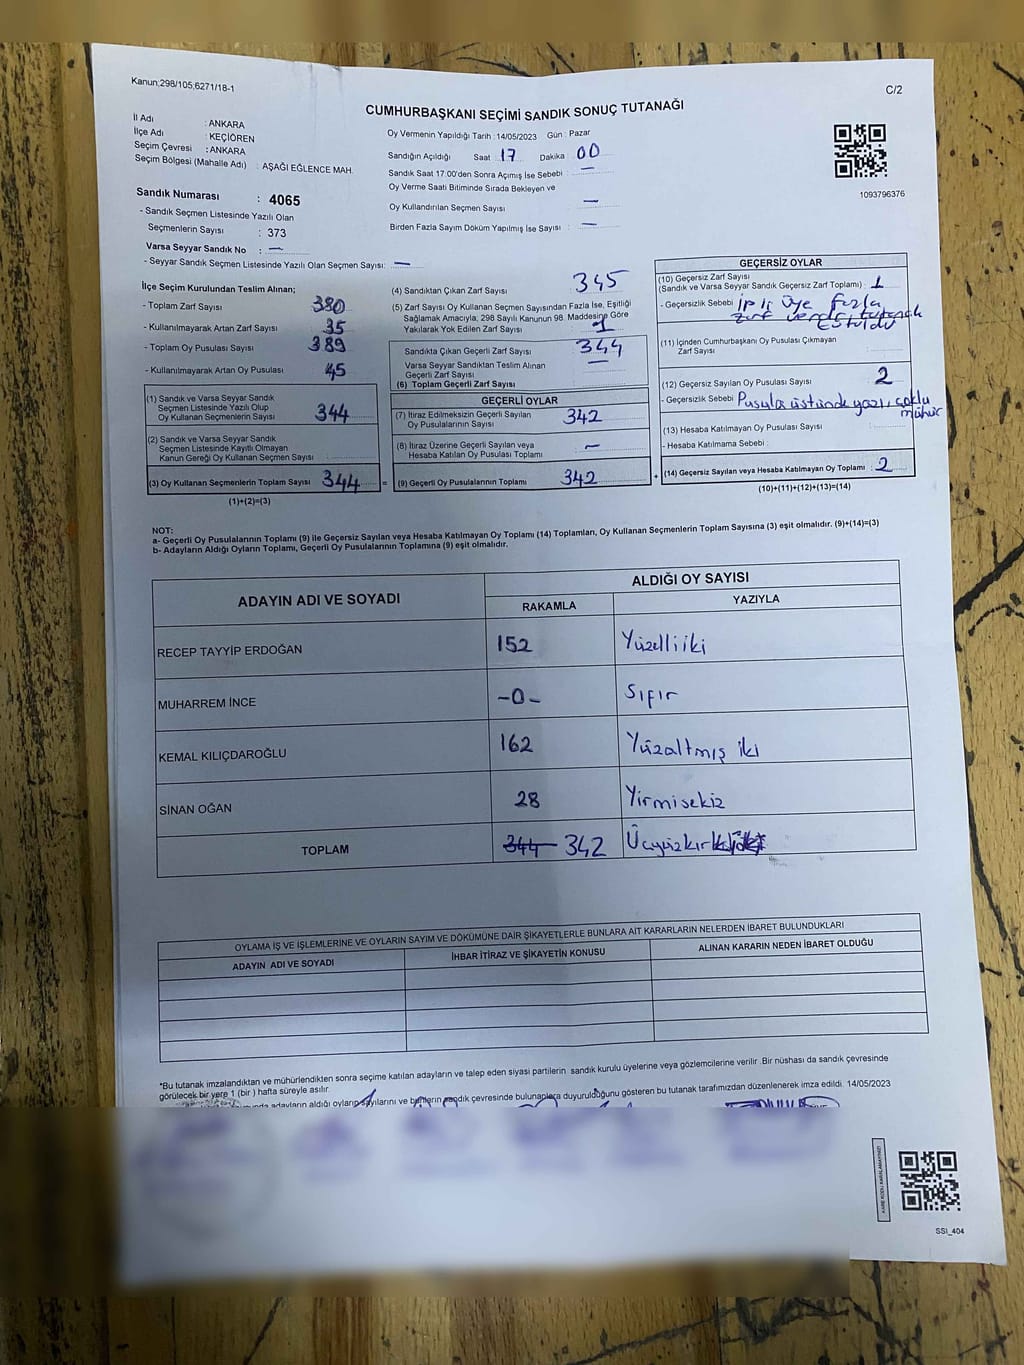 Kanun;298/105;6271/18-1
C/2
CUMHURBAŞKANI SEÇİMİ SANDIK SONUÇ TUTANAĞI
İl Adı : ANKARA
İlçe Adı : KEÇİÖREN
Seçim Çevresi : ANKARA
Seçim Bölgesi (Mahalle Adı) : AŞAĞI EĞLENCE MAH.
Sandık Numarası : 4065
- Sandık Seçmen Listesinde Yazılı Olan
Seçmenlerin Sayısı : 373
Varsa Seyyar Sandık No : —
- Seyyar Sandık Seçmen Listesinde Yazılı Olan Seçmen Sayısı: —
Oy Vermenin Yapıldığı Tarih : 14/05/2023 Gün : Pazar
Sandığın Açıldığı Saat 17 Dakika 00
Sandık Saat 17.00'den Sonra Açımış İse Sebebi : —
Oy Verme Saati Bitiminde Sırada Bekleyen ve
Oy Kullandırılan Seçmen Sayısı —
Birden Fazla Sayım Döküm Yapılmış İse Sayısı : —
1093796376
İlçe Seçim Kurulundan Teslim Alınan;
- Toplam Zarf Sayısı 380
- Kullanılmayarak Artan Zarf Sayısı 35
- Toplam Oy Pusulası Sayısı 389
- Kullanılmayarak Artan Oy Pusulası 45
(1) Sandık ve Varsa Seyyar Sandık
Seçmen Listesinde Yazılı Olup
Oy Kullanan Seçmenlerin Sayısı : 344
(2) Sandık ve Varsa Seyyar Sandık
Seçmen Listesinde Kayıtlı Olmayan
Kanun Gereği Oy Kullanan Seçmen Sayısı :
(3) Oy Kullanan Seçmenlerin Toplam Sayısı 344 =
(1)+(2)=(3)
(4) Sandıktan Çıkan Zarf Sayısı : 345
(5) Zarf Sayısı Oy Kullanan Seçmen Sayısından Fazla İse, Eşitliği
Sağlamak Amacıyla, 298 Sayılı Kanunun 98. Maddesine Göre
Yakılarak Yok Edilen Zarf Sayısı : 1
Sandıkta Çıkan Geçerli Zarf Sayısı 344
Varsa Seyyar Sandıktan Teslim Alınan
Geçerli Zarf Sayısı —
(6) Toplam Geçerli Zarf Sayısı
GEÇERLİ OYLAR
(7) İtiraz Edilmeksizin Geçerli Sayılan
Oy Pusulalarının Sayısı : 342
(8) İtiraz Üzerine Geçerli Sayılan veya
Hesaba Katılan Oy Pusulası Toplamı —
(9) Geçerli Oy Pusulalarının Toplamı : 342 +
GEÇERSİZ OYLAR
(10) Geçersiz Zarf Sayısı
(Sandık ve Varsa Seyyar Sandık Geçersiz Zarf Toplamı) : 1
- Geçersizlik Sebebi : üye fazla
zarf verdi tutanak
(11) İçinden Cumhurbaşkanı Oy Pusulası Çıkmayan
Zarf Sayısı
(12) Geçersiz Sayılan Oy Pusulası Sayısı 2
- Geçersizlik Sebebi Pusula üstünde yazı, çoklu
mühür
(13) Hesaba Katılmayan Oy Pusulası Sayısı
- Hesaba Katılmama Sebebi :
(14) Geçersiz Sayılan veya Hesaba Katılmayan Oy Toplamı : 2
(10)+(11)+(12)+(13)=(14)
NOT:
a- Geçerli Oy Pusulalarının Toplamı (9) ile Geçersiz Sayılan veya Hesaba Katılmayan Oy Toplamı (14) Toplamları, Oy Kullanan Seçmenlerin Toplam Sayısına (3) eşit olmalıdır. (9)+(14)=(3)
b- Adayların Aldığı Oyların Toplamı, Geçerli Oy Pusulalarının Toplamına (9) eşit olmalıdır.
ADAYIN ADI VE SOYADI
ALDIĞI OY SAYISI
RAKAMLA YAZIYLA
RECEP TAYYİP ERDOĞAN 152 Yüzelliiki
MUHARREM İNCE -0- Sıfır
KEMAL KILIÇDAROĞLU 162 Yüzaltmış iki
SİNAN OĞAN 28 Yirmisekiz
TOPLAM 344 342 Üçyüzkırk
OYLAMA İŞ VE İŞLEMLERİNE VE OYLARIN SAYIM VE DÖKÜMÜNE DAİR ŞİKAYETLERLE BUNLARA AİT KARARLARIN NELERDEN İBARET BULUNDUKLARI
ADAYIN ADI VE SOYADI İHBAR İTİRAZ VE ŞİKAYETİN KONUSU ALINAN KARARIN NEDEN İBARET OLDUĞU
*Bu tutanak imzalandıktan ve mühürlendikten sonra seçime katılan adayların ve talep eden siyasi partilerin sandık kurulu üyelerine veya gözlemcilerine verilir .Bir nüshası da sandık çevresinde
görülecek bir yere 1 (bir ) hafta süreyle asılır.
adayların aldığı oyların sayılarını ve bunların sandık çevresinde bulunanlara duyurulduğunu gösteren bu tutanak tarafımızdan düzenlenerek imza edildi. 14/05/2023
SSİ_404